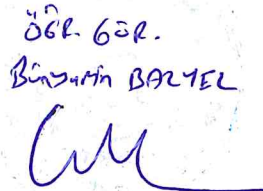 ÖĞR. GÖR.
Bünyamin BAZYEL